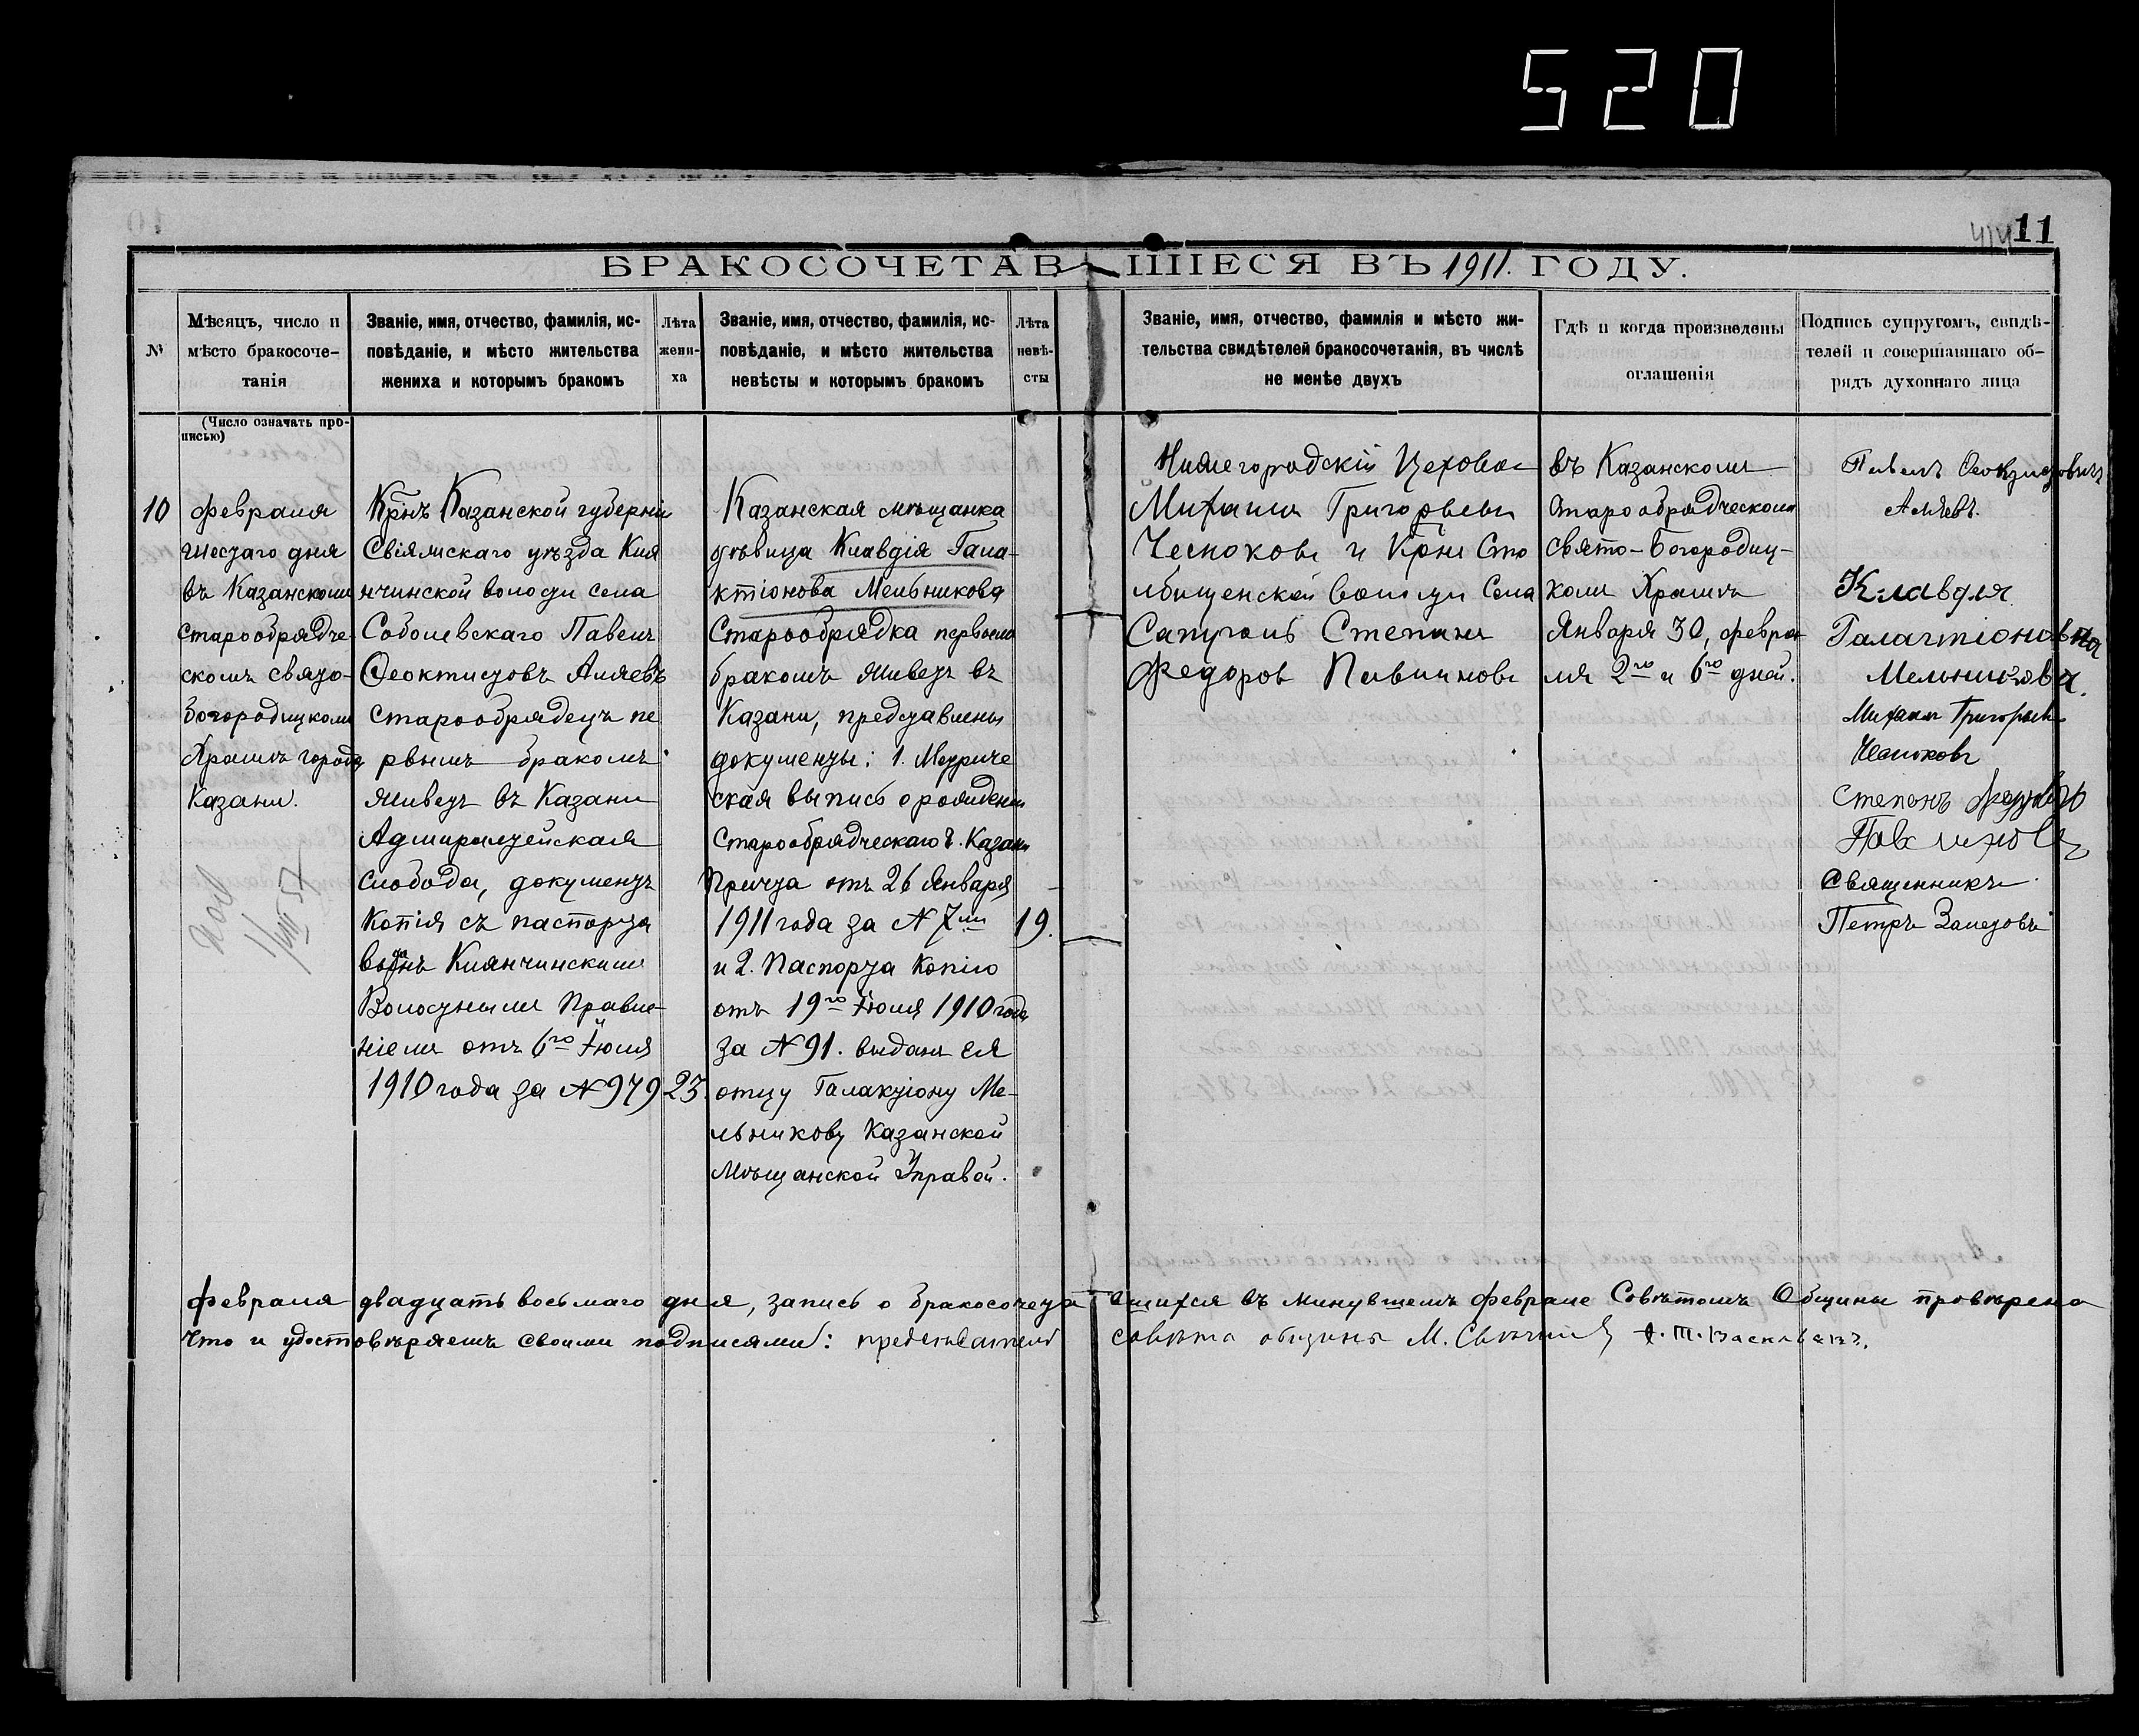 520
11
БРАКОСОЧЕТАВШІЕСЯ ВЪ 1911. ГОДУ.
№
Мѣсяцъ, число и
мѣсто бракосоче-
танія
Званіе, имя, отчество, фамилія, ис-
повѣданіе, и мѣсто жительства
жениха и которымъ бракомъ
Лѣта
жени-
ха
Званіе, имя, отчество, фамилія, ис-
повѣданіе, и мѣсто жительства
невѣсты и которымъ бракомъ
Лѣта
невѣ-
сты
Званіе, имя, отчество, фамилія и мѣсто жи-
тельства свидѣтелей бракосочетанія, въ числѣ
не менѣе двухъ
Гдѣ и когда произведены
оглашенія
Подпись супругомъ, свидѣ-
телей и совершавшаго об-
рядъ духовнаго лица
(Число означать про-
писью)
10
Февраля
шестаго дня
въ Казанскомъ
старообрядче-
скомъ свято-
богородицкомъ
Храмѣ города
Казани.
Крнъ Казанской губерніи
Свіяжскаго уѣзда Кля
нчинской волости села
Соболевскаго Павелъ
Ѳеоктистовъ Аляевъ
старообрядецъ пе
рвымъ бракомъ
живетъ въ Казани
Адмиралтейская
слобода, документъ
копія съ паспорта
выданъ Клянчинскимъ
Волостнымъ Правле-
ніемъ отъ 6го Іюля
1910 года за № 979
23.
Казанская мѣщанка
дѣвица Клавдія Гала-
ктіонова Мельникова
Старообрядка первымъ
бракомъ живетъ въ
Казани, представлены
документы: 1. Метриче
ская выпись о рожденіи
Старообрядческаго г. Казани
Причта отъ 26 Января
1911 года за № 7мъ
и 2. Паспорта копію
отъ 19го Іюля 1910 года
за № 91. выданъ ея
отцу Галактіону Ме-
льникову Казанской
Мѣщанской Управой.
19.
Нижегородскій Цеховой
Михаилъ Григорьевъ
Чесноковъ и Крнъ Сто
лбищенской волости Села
Сапуголь Степанъ
Федоров Павлиновъ
въ Казанскомъ
старообрядческомъ
свято-Богородиц-
комъ Храмѣ
Января 30, февра
ля 2го и 6го дней.
Павелъ Ѳеоктистовичъ
Аляевъ.
Клавдія
Галактіоновна
Мельникова.
Михаил Григорьев
Чесноковъ
Степанъ Федоровъ
Павлиновъ
Священникъ
Петръ Залетовъ
Февраля двадцать восьмаго дня, запись о бракосочетавшихся въ минувшемъ феврале Совѣтомъ Общины провѣрена
что и удостовѣряемъ своими подписями: председатель совѣта общины М.